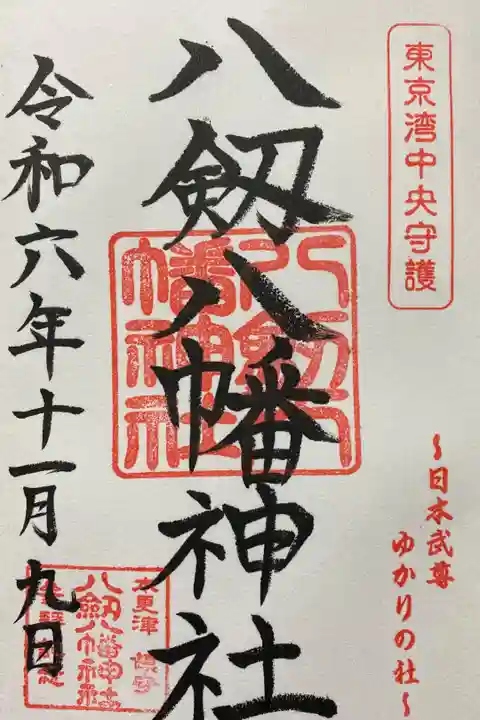 東京湾中央守護
～日本武尊
ゆかりの社～
八剱八幡神社
八剱八
幡神社
令和六年十一月九日
木更津
八剱八幡神社